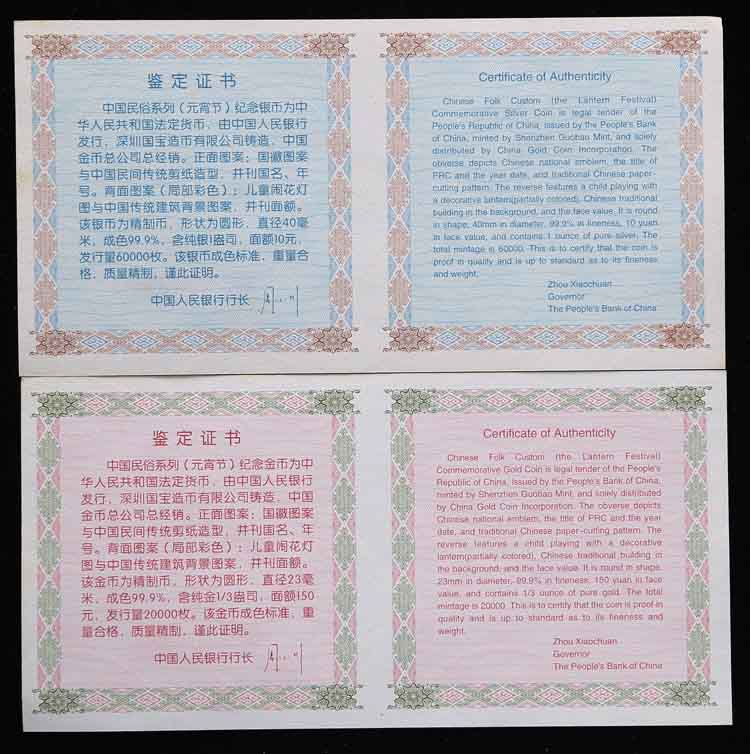 鉴定证书
中国民俗系列（元宵节）纪念银币为中
华人民共和国法定货币，由中国人民银行
发行，深圳国宝造币有限公司铸造，中国
金币总公司总经销。正面图案：国徽图案
与中国民间传统剪纸造型，并刊国名、年
号。背面图案（局部彩色）：儿童闹花灯
图与中国传统建筑背景图案，并刊面额。
该银币为精制币，形状为圆形，直径40毫
米，成色99.9%，含纯银1盎司，面额10元，
发行量60000枚。该银币成色标准，重量合
格，质量精制，谨此证明。
中国人民银行行长
Certificate of Authenticity
Chinese Folk Custom (the Lantern Festival)
Commemorative Silver Coin is legal tender of the
People's Republic of China, issued by the People's Bank
of China, minted by Shenzhen Guobao Mint, and solely
distributed by China Gold Coin Incorporation. The
obverse depicts Chinese national emblem, the title of
PRC and the year date, and traditional Chinese paper-
cutting pattern. The reverse features a child playing with
a decorative lantern(partially colored), Chinese traditional
building in the background, and the face value. It is round
in shape, 40mm in diameter, 99.9% in fineness, 10 yuan
in face value, and contains 1 ounce of pure silver. The
total mintage is 60000. This is to certify that the coin is
proof in quality and is up to standard as to its fineness
and weight.
Zhou Xiaochuan
Governor
The People's Bank of China
鉴定证书
中国民俗系列（元宵节）纪念金币为中
华人民共和国法定货币，由中国人民银行
发行，深圳国宝造币有限公司铸造，中国
金币总公司总经销。正面图案：国徽图案
与中国民间传统剪纸造型，并刊国名、年
号。背面图案（局部彩色）：儿童闹花灯
图与中国传统建筑背景图案，并刊面额。
该金币为精制币，形状为圆形，直径23毫
米，成色99.9%，含纯金1/3盎司，面额150
元，发行量20000枚。该金币成色标准，重
量合格，质量精制，谨此证明。
中国人民银行行长
Certificate of Authenticity
Chinese Folk Custom (the Lantern Festival)
Commemorative Gold Coin is legal tender of the People's
Republic of China, issued by the People's Bank of China,
minted by Shenzhen Guobao Mint, and solely distributed
by China Gold Coin Incorporation. The obverse depicts
Chinese national emblem, the title of PRC and the year
date, and traditional Chinese paper-cutting pattern. The
reverse features a child playing with a decorative
lantern(partially colored), Chinese traditional building in
the background, and the face value. It is round in shape,
23mm in diameter, 99.9% in fineness, 150 yuan in face
value, and contains 1/3 ounce of pure gold. The total
mintage is 20000. This is to certify that the coin is proof in
quality and is up to standard as to its fineness and
weight.
Zhou Xiaochuan
Governor
The People's Bank of China